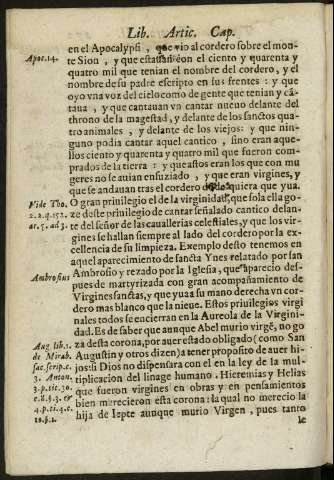 Lib. Artic. Cap.
en el Apocalypsi, que vio al cordero sobre el mon-
Apoc. 14. te Sion, y que estauan con el ciento y quarenta y
quatro mil que tenian el nombre del cordero, y el
nombre de su padre escripto en sus frentes: y que
oyo vna voz del cielo como de gente que tenian y cã-
taua, y que cantauan vn cantar nueuo delante del
throno de la magestad, y delante de los sanctos qua-
tro animales, y delante de los viejos: y que nin-
guno podia cantar aquel cantico, sino eran aque-
llos ciento y quarenta y quatro mil que fueron com-
prados de la tierra: y que estos eran los que con mu
geres no se auian ensuziado, y que eran virgines, y
que se andauan tras el cordero do quiera que yua.
Vide Tho. O gran priuilegio el de la virginidad, que sola ella go-
2. 2. q. 152. ze deste priuilegio de cantar señalado cantico delan-
ar. 5. ad 3. te del señor de las cauallerias celestiales, y que los vir-
gines se hallan siempre al lado del cordero por la ex-
celencia de su limpieza. Exemplo desto tenemos en
aquel aparecimiento de sancta Ynes relatado por san
Ambrosius Ambrosio y rezado por la Iglesia, que aparecio des-
pues de martyrizada con gran acompañamiento de
Virgines sanctas, y que yua a su mano derecha vn cor-
dero mas blanco que la nieue. Estos priuilegios virgi
nales todos se encierran en la Aureola de la Virgini-
dad. Es de saber que aunque Abel murio virgẽ, no go
Aug. lib. 1. za desta corona, por auer estado obligado (como San
de Mirab. Augustin y otros dizen) a tener proposito de auer hi-
sac. scrip. c. jos: si Dios no dispensara con el en la ley de la mul-
3. Anton. tiplicacion del linage humano. Hieremias y Helias
3. p. tit. 30. que fueron virgines en obras y en pensamientos
bien merecieron esta corona: la qual no merecio la
hija de Iepte aunque murio Virgen, pues tanto
le